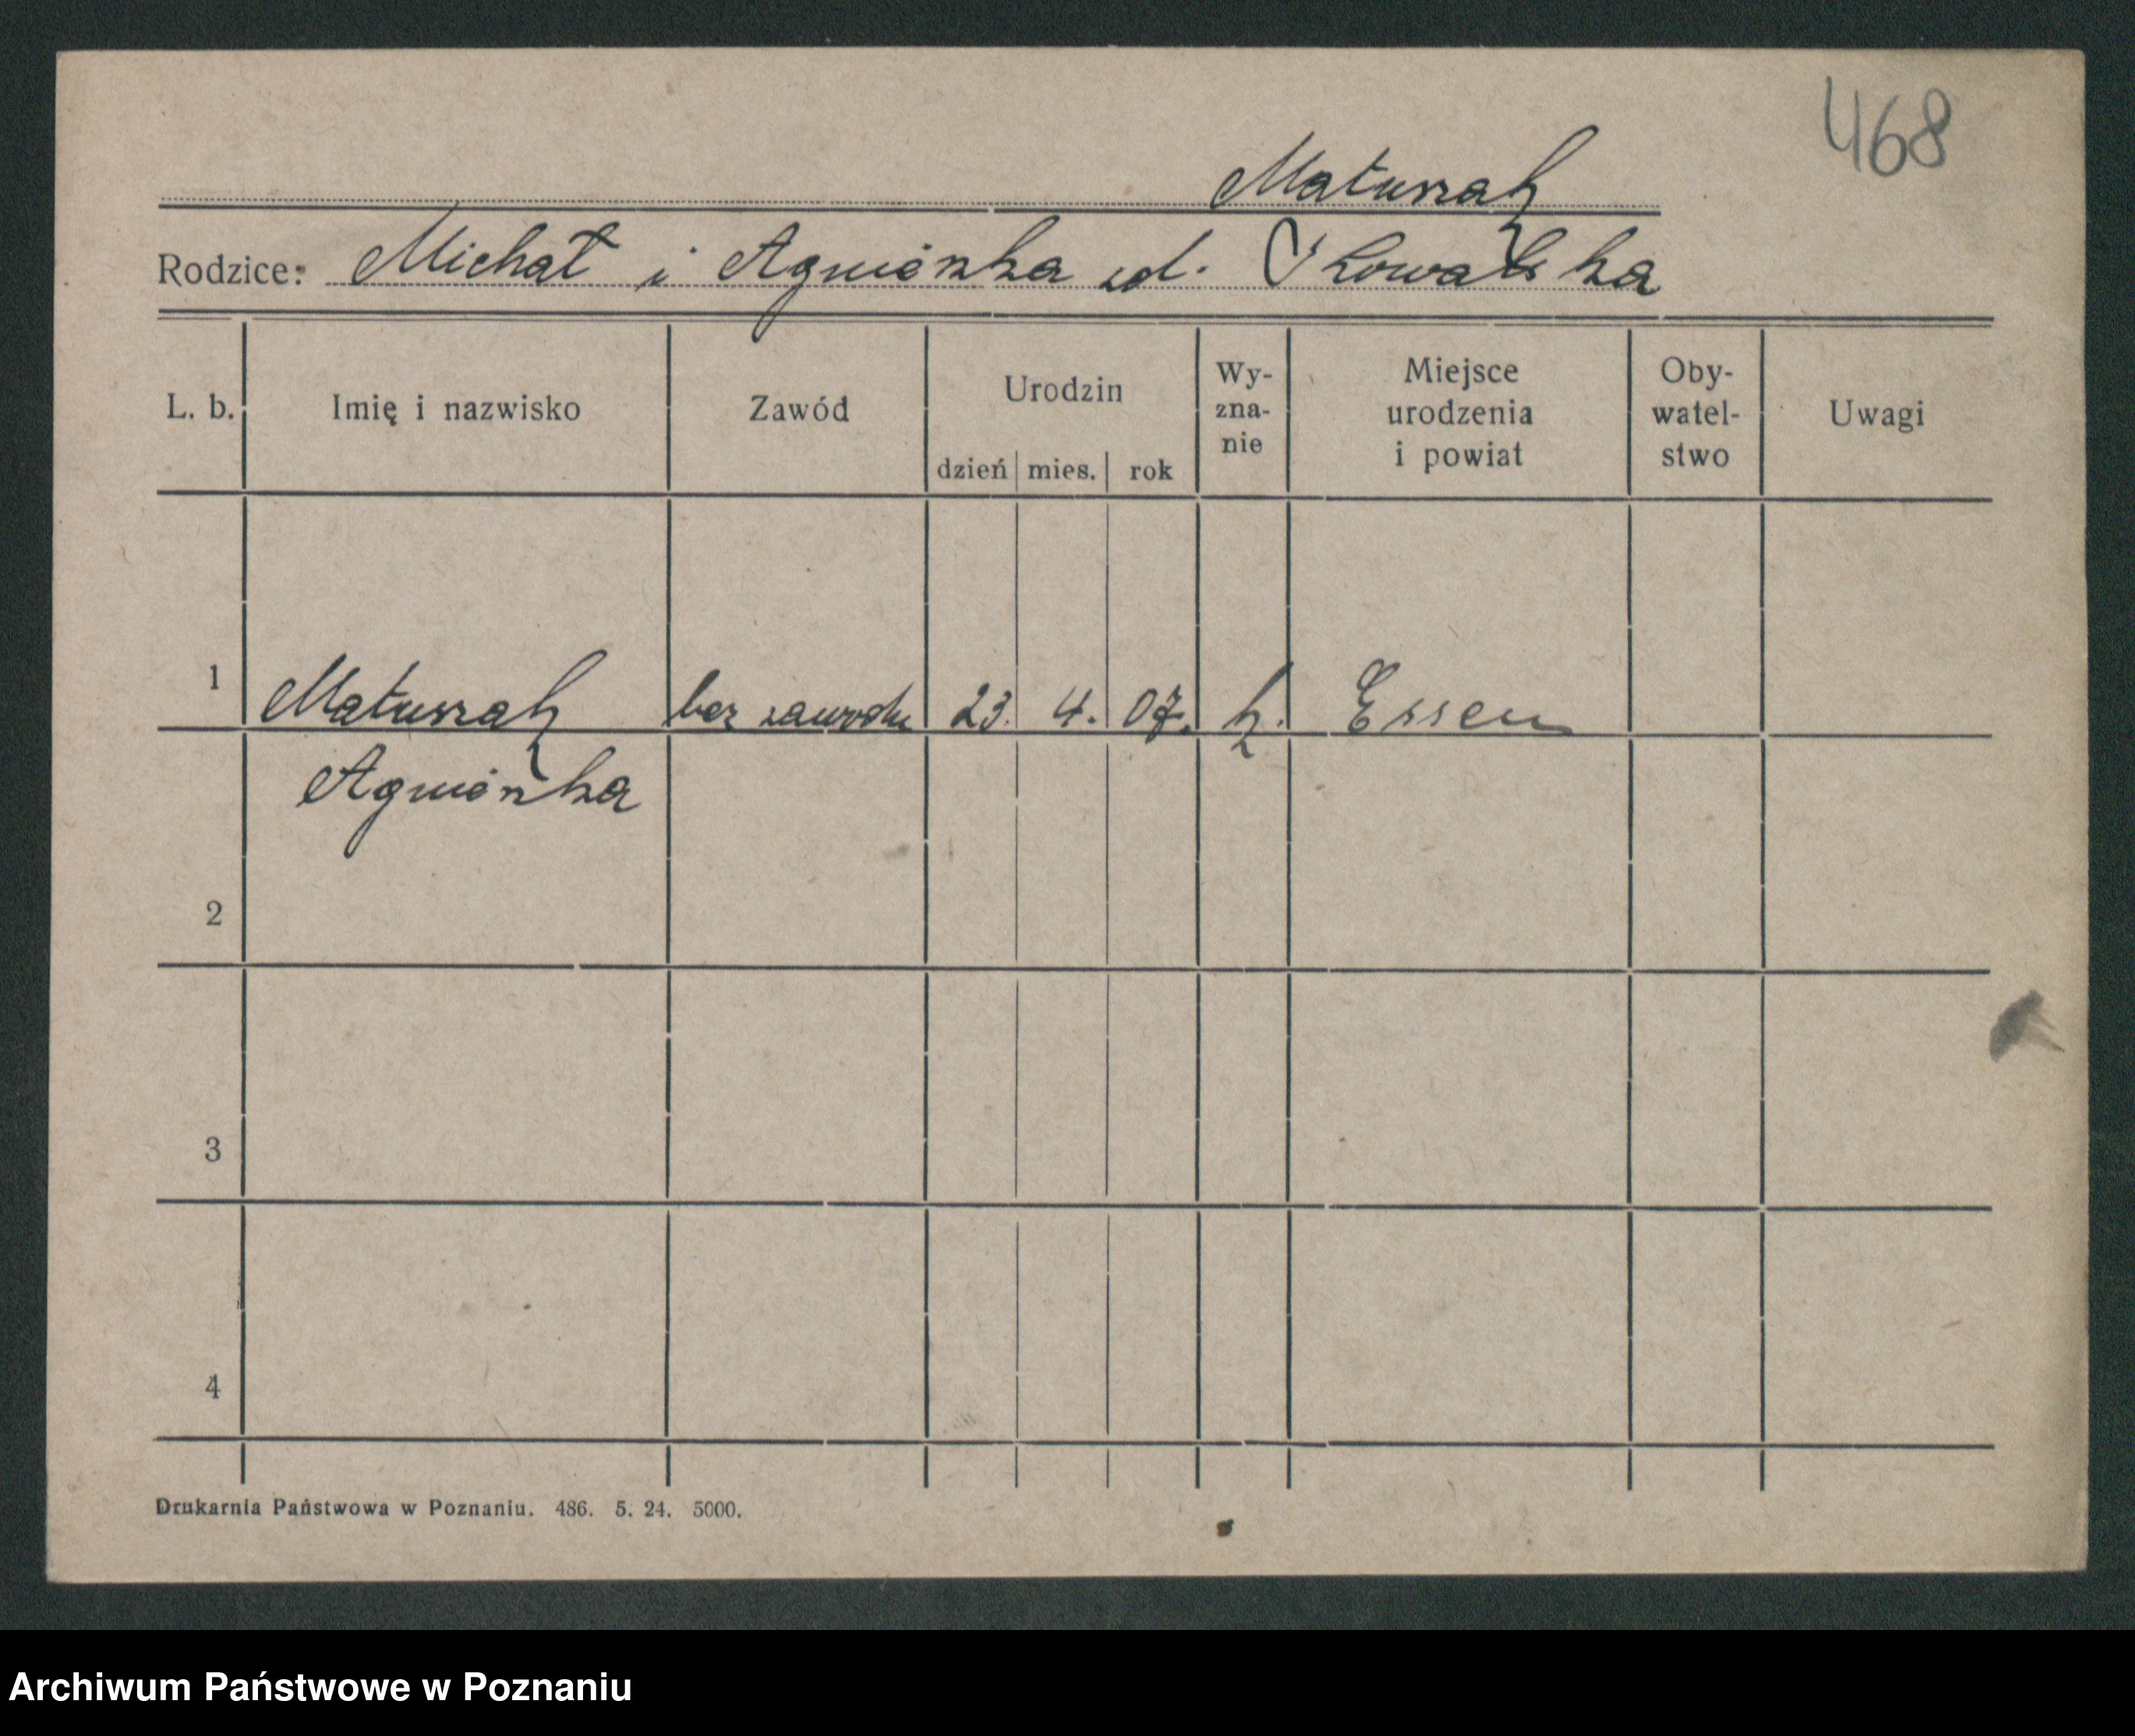 468
Matuszak
Rodzice: Michał i Agnieszka zd. Kowalska
L. b. Imię i nazwisko Zawód Urodzin dzień mies. rok Wy-zna-nie Miejsce urodzenia i powiat Oby-watel-stwo Uwagi
1 Matuszak bez zawodu 23. 4. 07. k. Essen
Agnieszka
2
3
4
Drukarnia Państwowa w Poznaniu. 486. 5. 24. 5000.
Archiwum Państwowe w Poznaniu